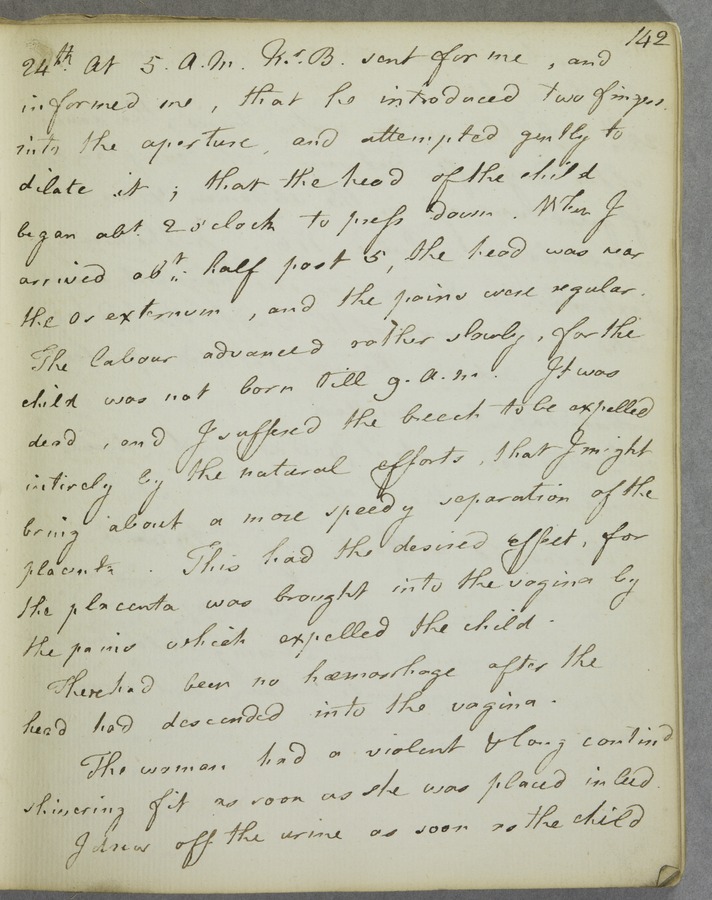 142
24th. At 5. A.M. Mr. B. sent for me, and
informed me, that he introduced two fingers
into the aperture, and attempted gently to
dilate it; that the head of the child
began abt. 2 o'clock to press down. When I
arrived abt. half past 5, the head was near
the Os externum, and the pains were regular.
The labour advanced rather slowly, for the
child was not born till 9. a.m. It was
dead, and I suffered the breech to be expelled
intirely by the natural efforts, that I might
bring about a more speedy separation of the
placenta. This had the desired effect, for
the placenta was brought into the vagina by
the pains which expelled the child.
There had been no hæmorrhage after the
head had descended into the vagina.
The woman had a violent & long contind
shivering fit as soon as she was placed in bed.
I drew off the urine as soon as the child